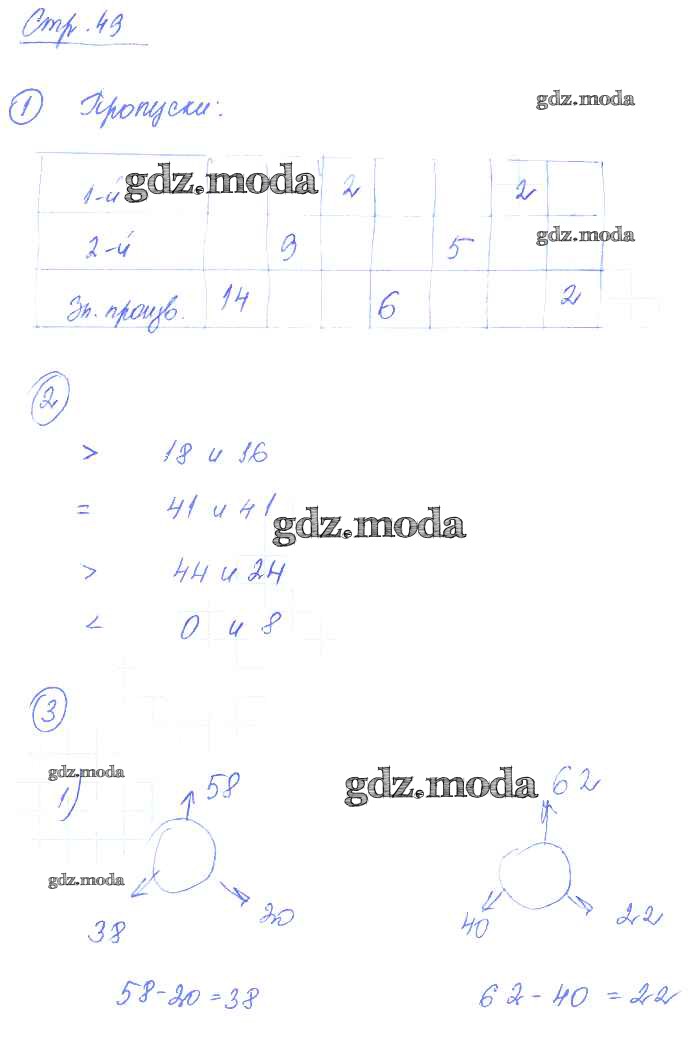 Стр. 49
① Пропуски:
gdz.moda
1-й 2 2
gdz.moda
2-й 9 5
gdz.moda
Зн. произв. 14 6 2
②
> 18 и 16
= 41 и 41
gdz.moda
> 44 и 24
< 0 и 8
③
gdz.moda
gdz.moda
1) 58 62
gdz.moda
38 20 40 22
58-20=38 62-40=22